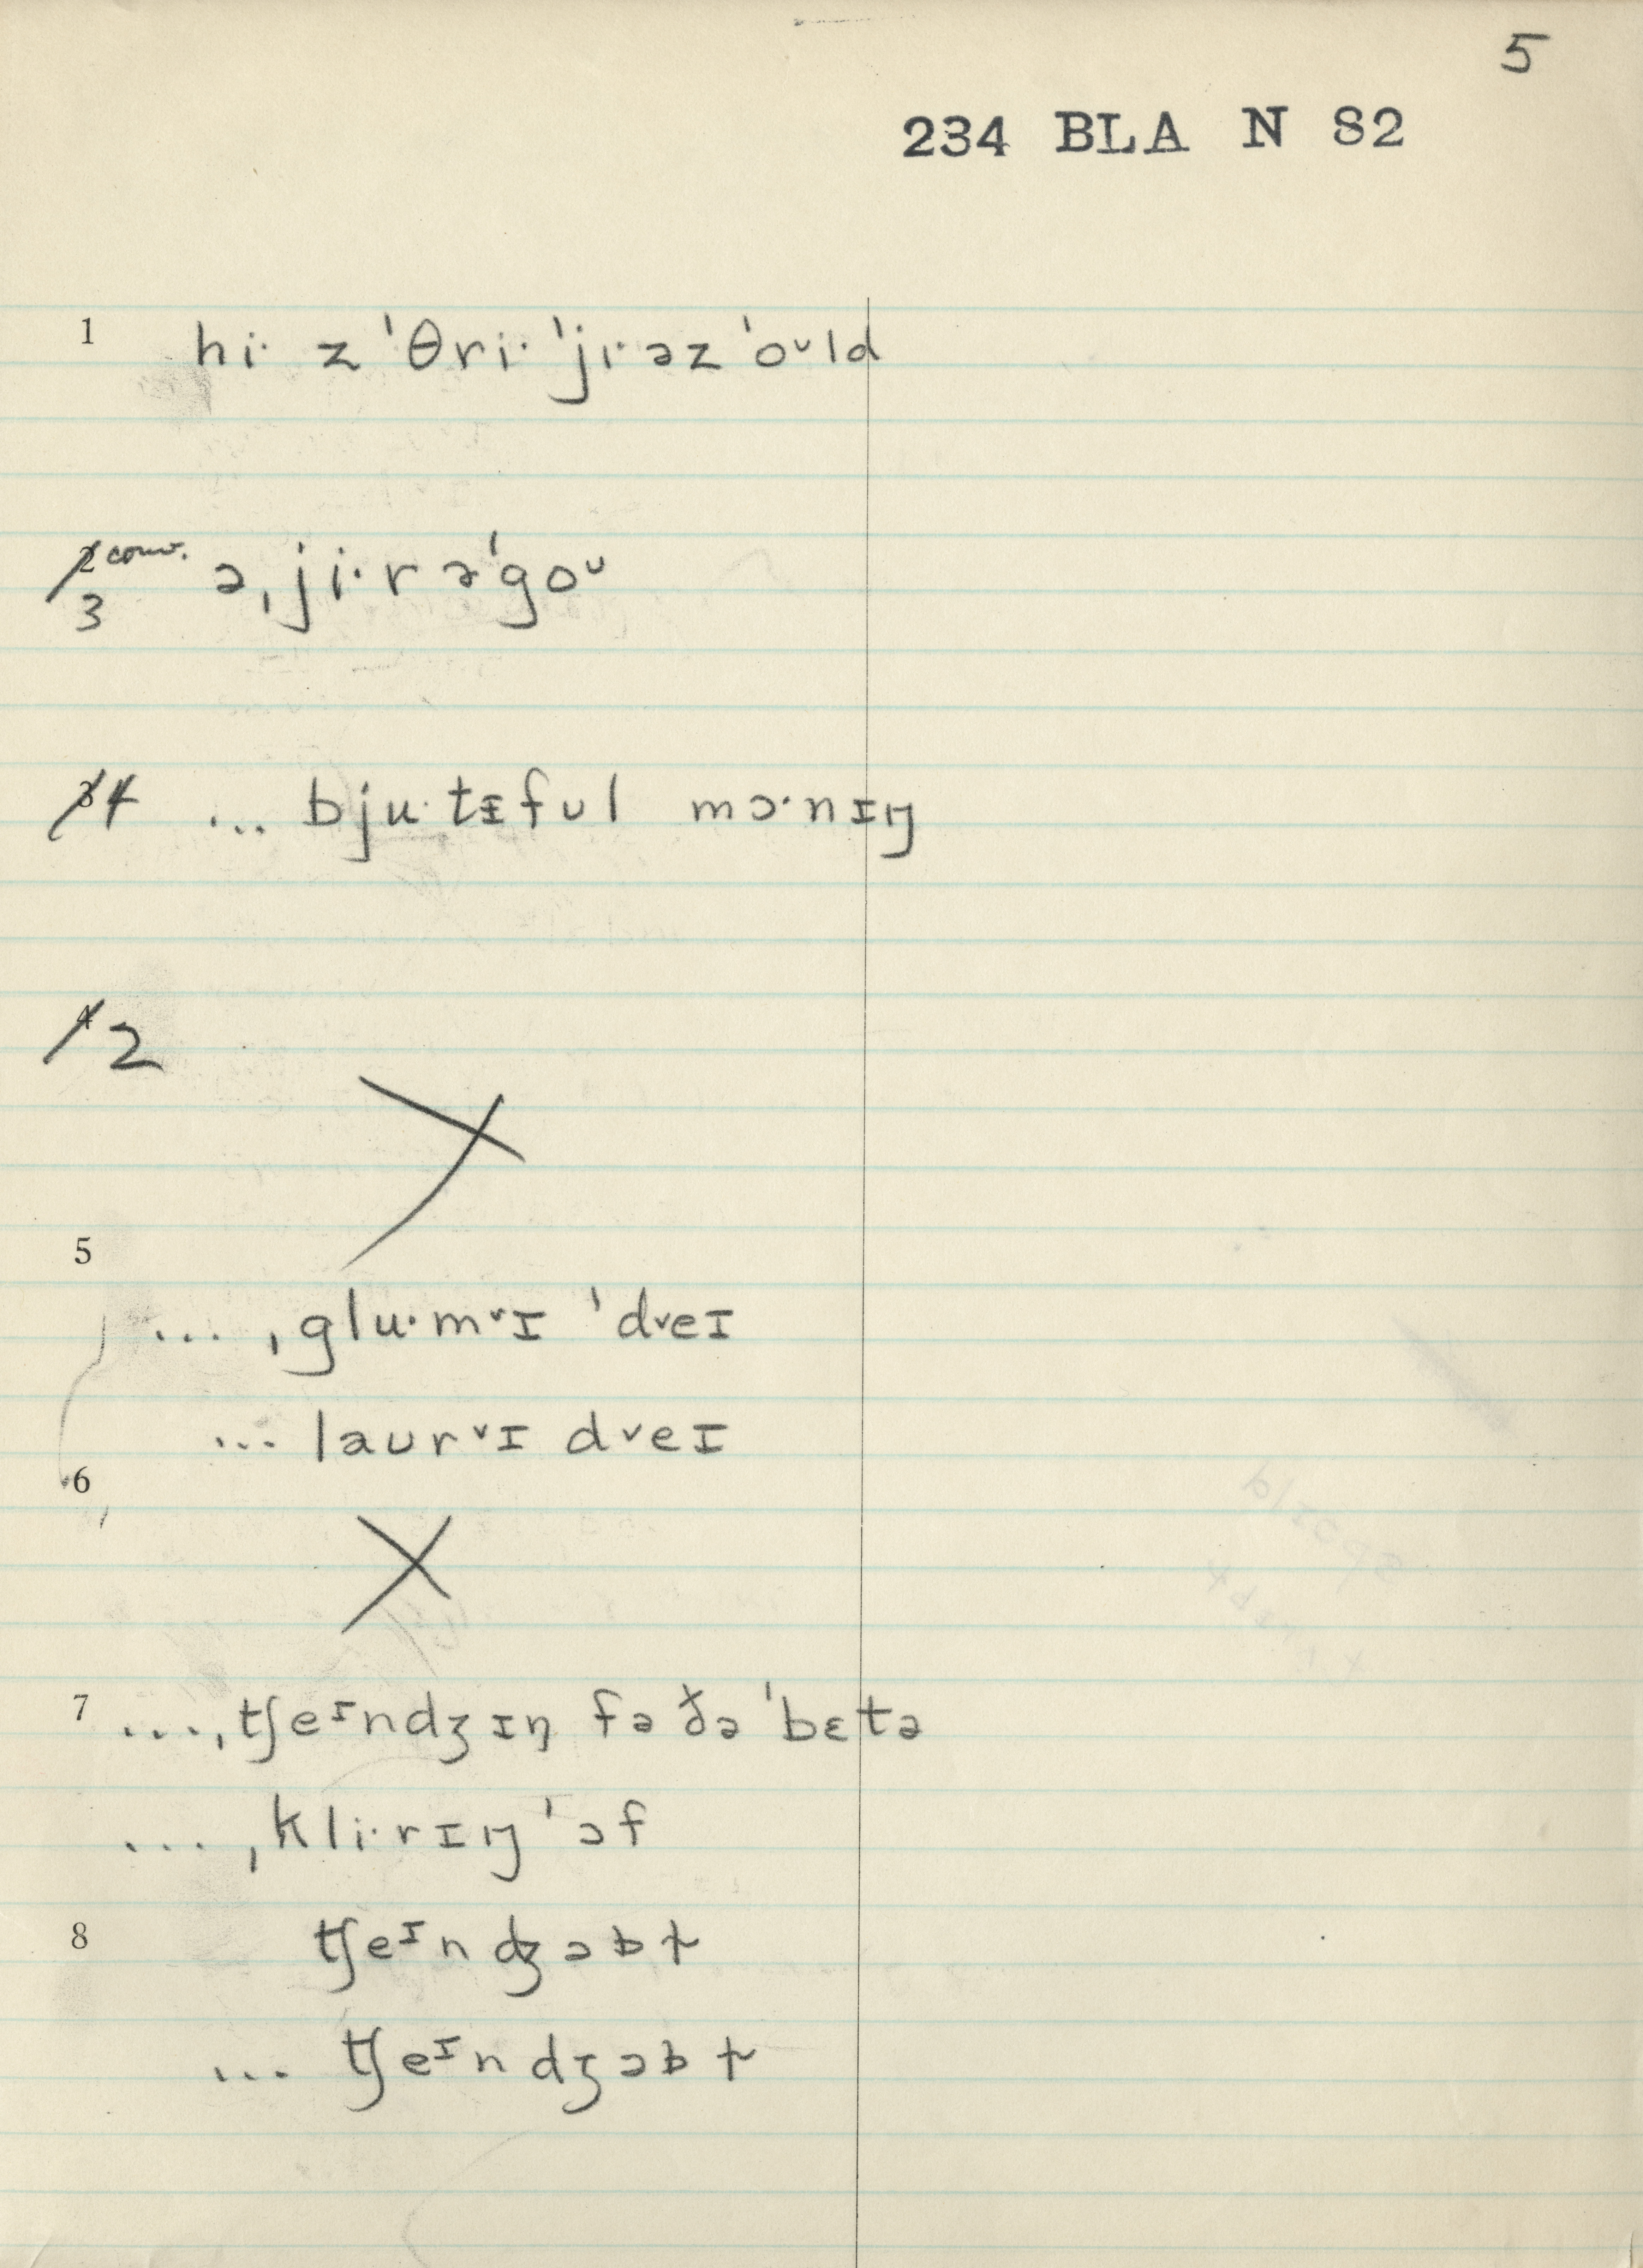 5
234 BLA N 82
1 hi· z ˈθri· ˈji·əz ˈoᴜld
2 conv. ə ˌji·r əˈgoᴜ
3
3 4 ... bju·tɪfᴜl mɔ·nɪŋ
4 2
5
... ˌglu·mᵛɪ ˈdᵛeɪ
... laᴜrᵛɪ dᵛeɪ
6
7 ... ˌtʃeᶦndʒɪŋ fə ðə ˈbɛtə
... ˌkli·rɪŋ ˈɔf
8 tʃeᶦndʒəbɫ
... tʃeᶦndʒəbɫ